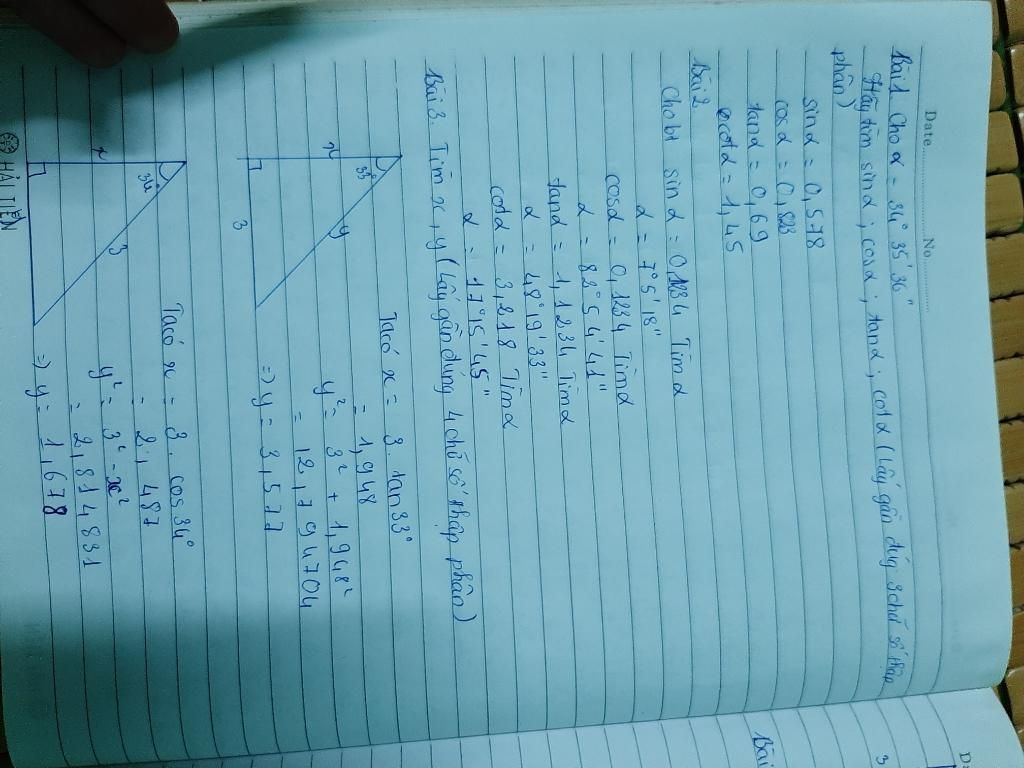 Date............ No............
Bài 1. Cho α = 34° 35' 36"
Hãy tìm sinα ; cosα ; tanα ; cotα (Lấy gần đúng 3 chữ số thập
phân)
sinα = 0,578
cosα = 0,823
tanα = 0,69
cotα = 1,45
Bài 2.
Cho bt sinα = 0,1234 Tìm α
α = 7° 5' 18"
cosα = 0,1234 Tìm α
α = 82° 54' 41"
tanα = 1,1234 Tìm α
α = 48° 19' 33"
cotα = 3,218 Tìm α
α = 17° 15' 45"
Bài 3. Tìm x, y (Lấy gần đúng 4 chữ số thập phân)
33°
x
y
3
Ta có x = 3. tan33°
= 1,948
y² = 3² + 1,948²
= 12,794704
=> y = 3,577
34°
x
3
Ta có x = 3. cos34°
= 2,487
y² = 3² - x²
= 2,814831
=> y = 1,678
HẢI TIẾN
Bài
3